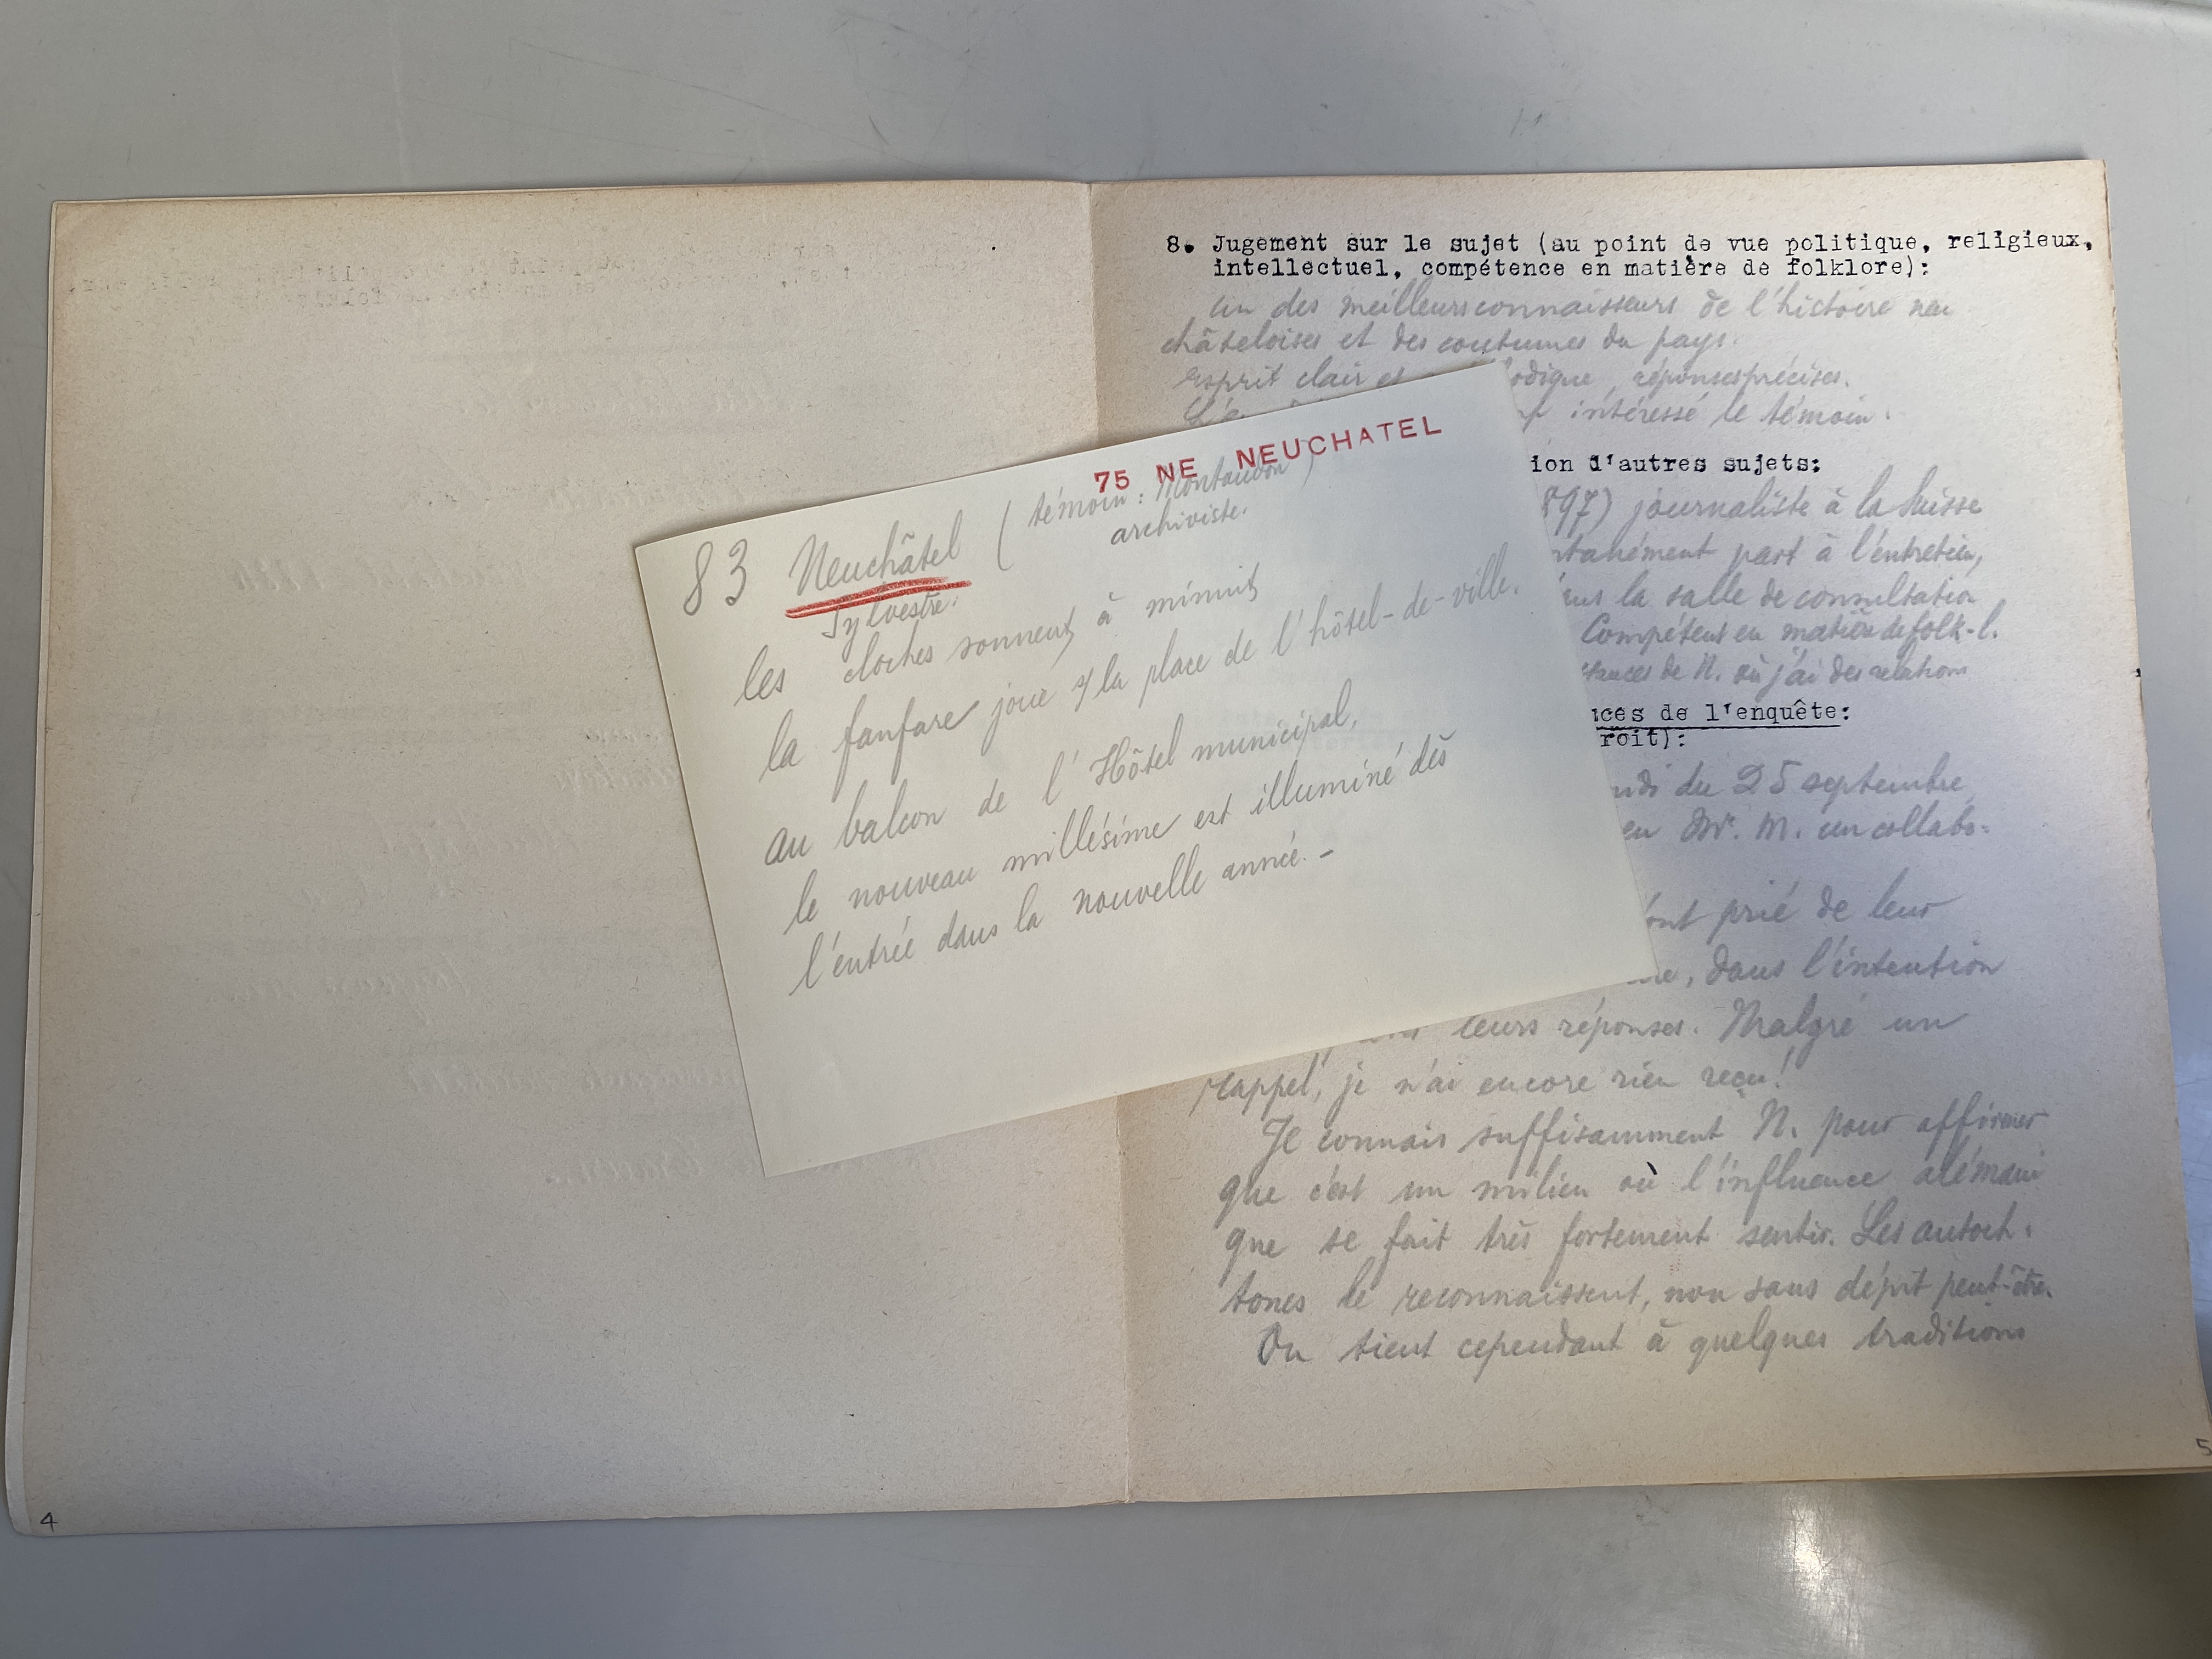 4
75 NE NEUCHATEL
83 Neuchâtel (témoin: Montandon,
archiviste.
Sylvestre:
les cloches sonnent à minuit
la fanfare joue s/la place de l'hôtel-de-ville.
au balcon de l'Hôtel municipal,
le nouveau millésime est illuminé dès
l'entrée dans la nouvelle année. -
8. Jugement sur le sujet (au point de vue politique, religieux,
intellectuel, compétence en matière de folklore):
Un des meilleurs connaisseurs de l'histoire neu-
châteloise et des coutumes du pays.
esprit clair et réponses précises.
intéressé le témoin.
ion d'autres sujets:
journaliste à la Suisse
part à l'entretien,
la salle de consultation
Compétent en matière de folkl.
de N. où j'ai des relations
ices de l'enquête:
roit):
du 25 septembre
en Dr. M. un collabo-
prié de leur
dans l'intention
leurs réponses. Malgré un
"rappel", je n'ai encore rien reçu!
Je connais suffisamment N. pour affirmer
que c'est un milieu où l'influence alémani-
que se fait très fortement sentir. Les autoch-
tones le reconnaissent, non sans dépit peut-être.
On tient cependant à quelques traditions
5